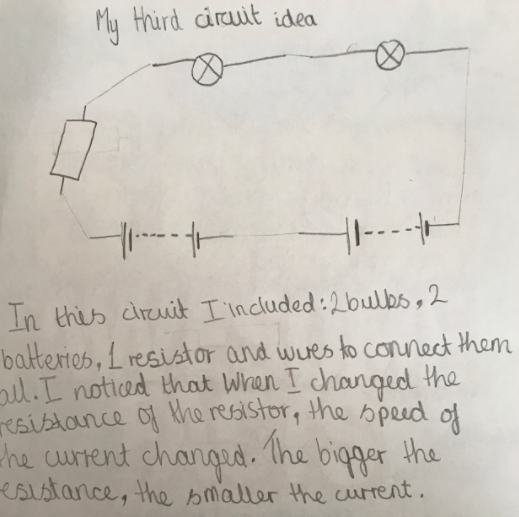 My third circuit idea
In this circuit I included: 2 bulbs, 2
batteries, 1 resistor and wires to connect them
all. I noticed that when I changed the
resistance of the resistor, the speed of
the current changed. The bigger the
resistance, the smaller the current.